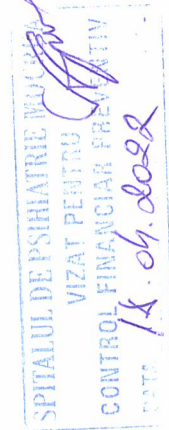 SPITALUL DE PSIHIATRIE
VIZAT PENTRU
CONTROL FINANCIAR PREVENTIV
18.04.2022